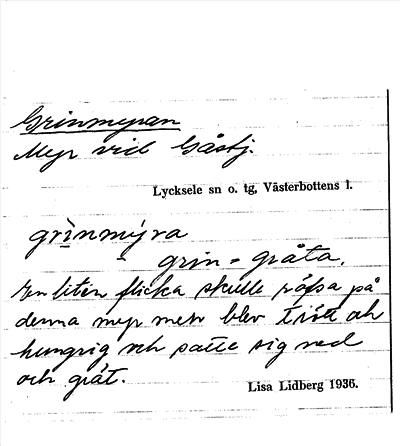 Grinmyran
Myr vid Gåstj.
Lycksele sn o. tg, Västerbottens l.
grìnmýra
grin = gråta.
En liten flicka skulle räfsa på
denna myr men blev trött och
hungrig och satte sig ned
och grät.
Lisa Lidberg 1936.